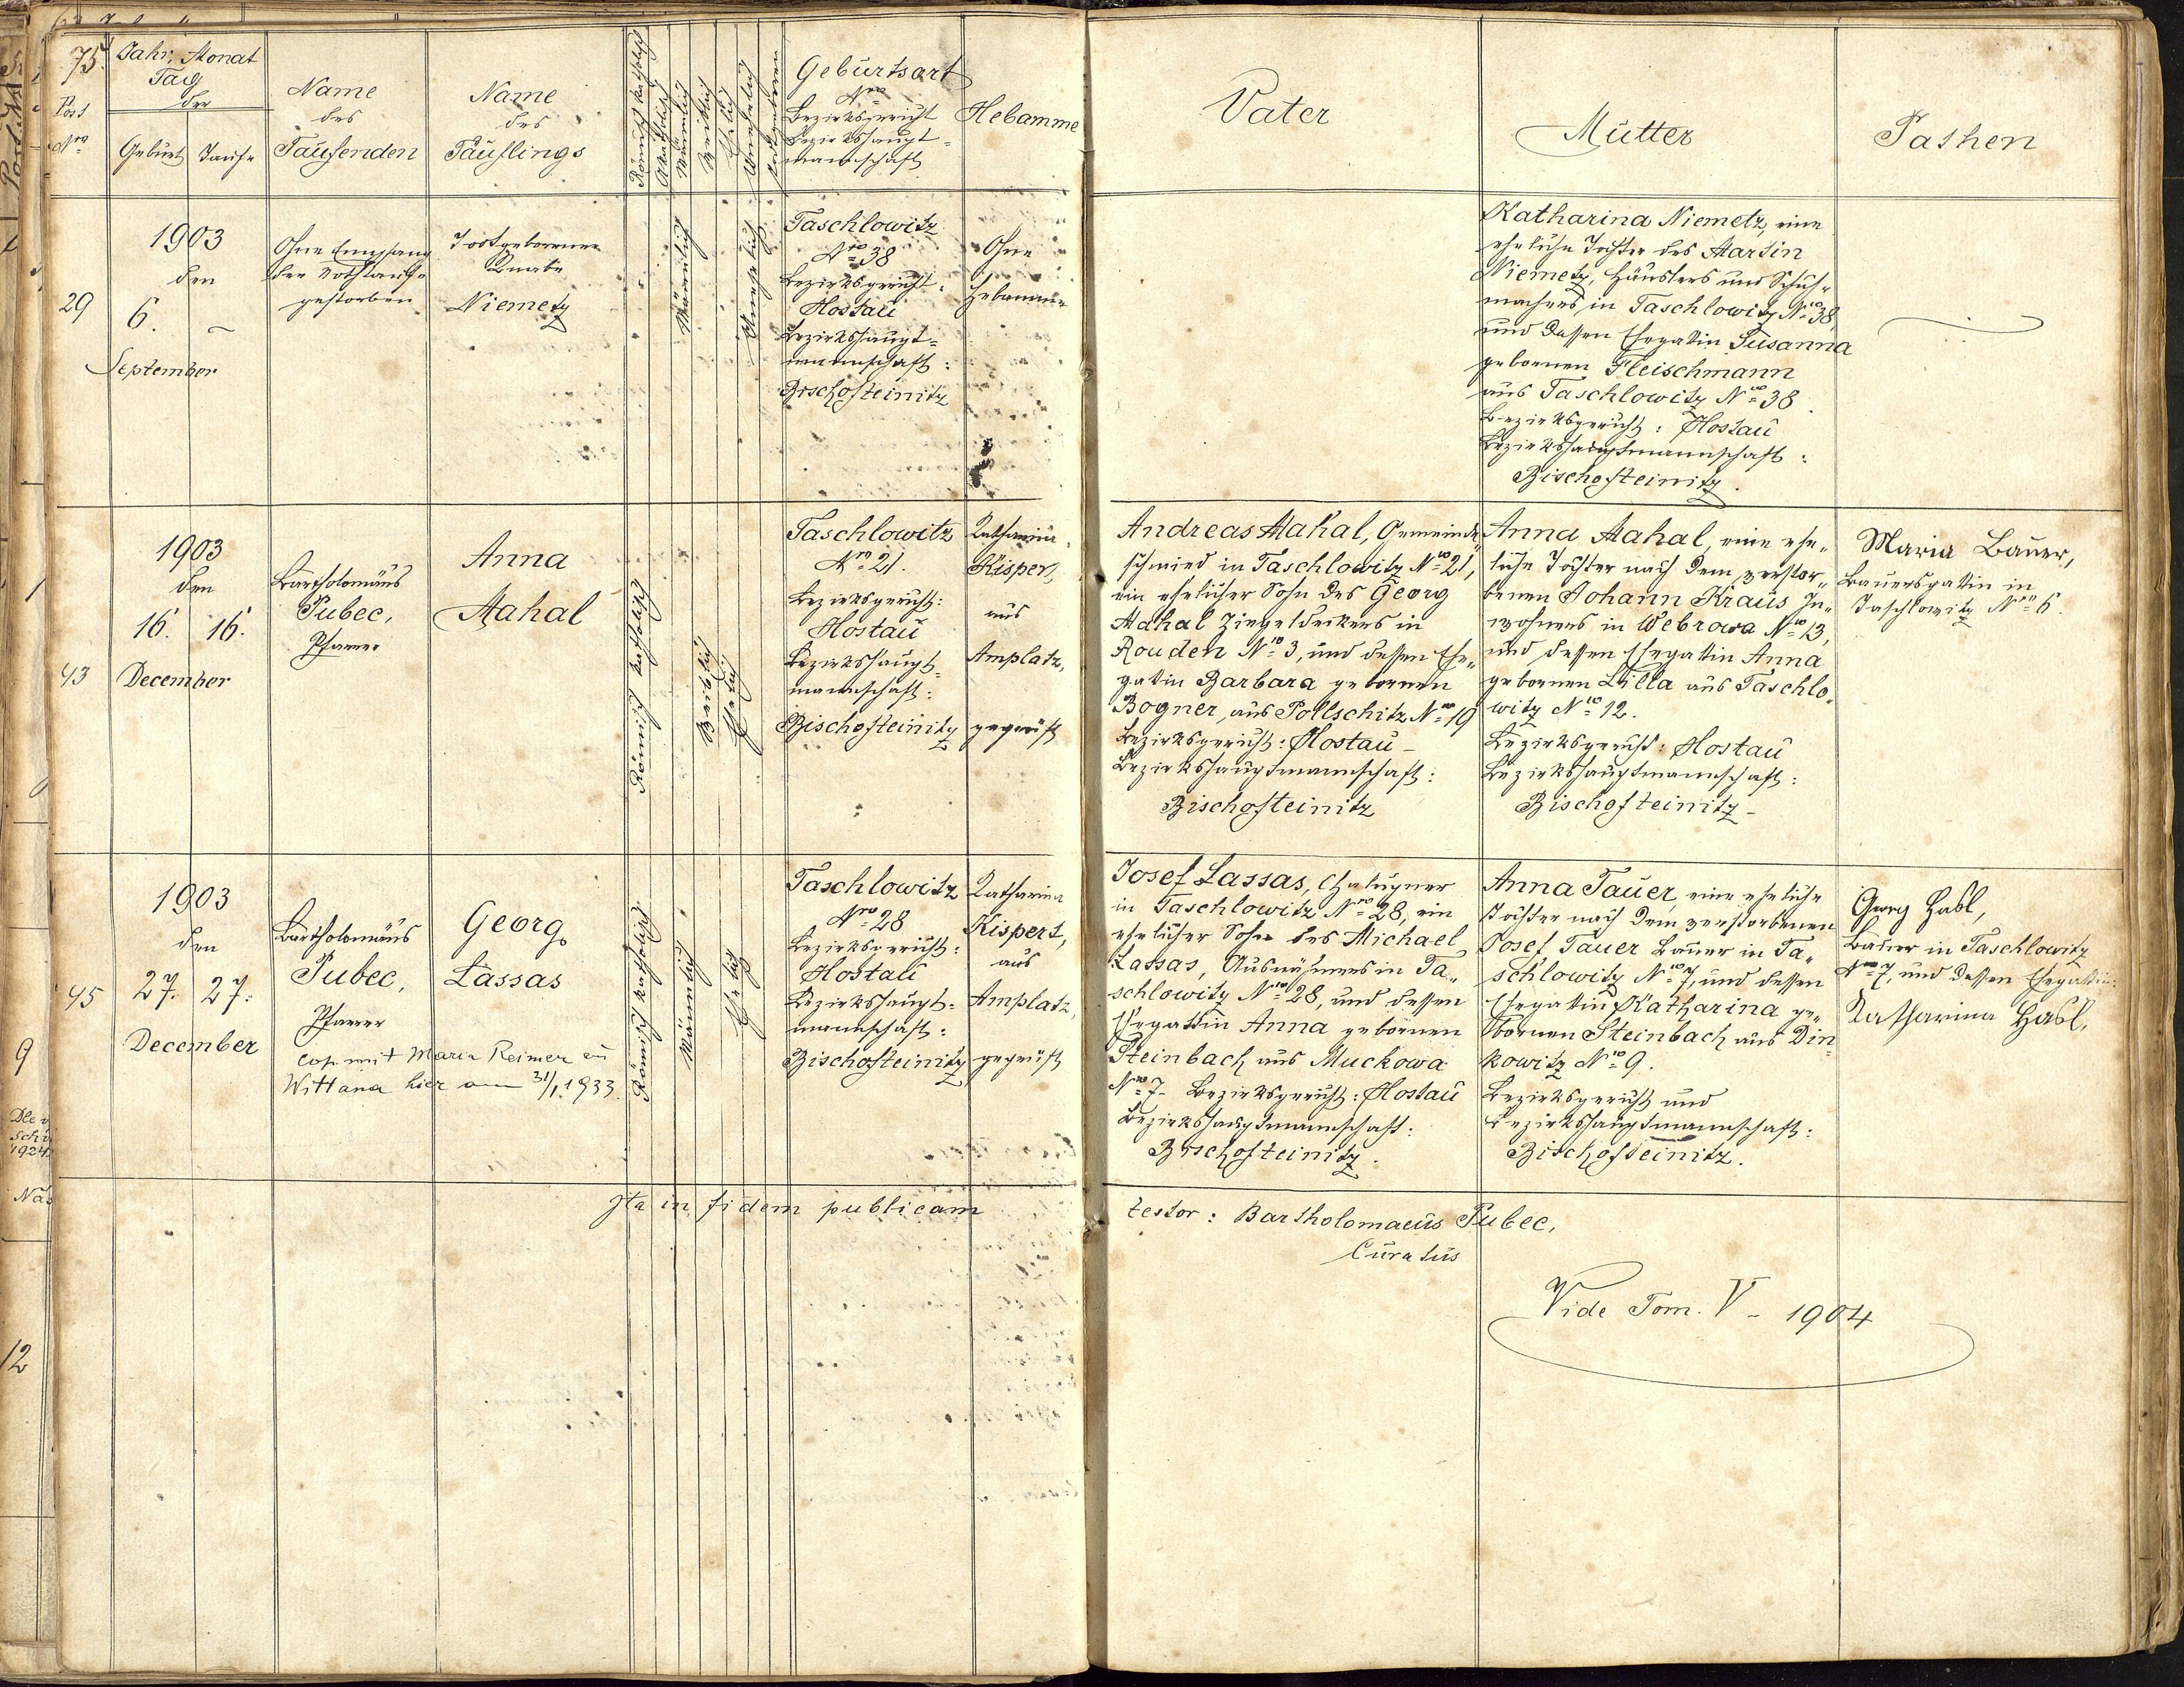 75.
Post
Nro
Jahr, Monat
Tag
der
Geburt
Taufe
Name
des
Taufenden
Name
des
Täuflings
Römisch katholisch
Akatholisch
Männlich
Weiblich
Ehelich
Unehelich
Todtgeboren
Geburtsort
Nro
Bezirksgericht
Bezirkshaupt-
mannschaft
Hebamme
Vater
Mutter
Pathen
29
1903
den
6. –
September
Ohne Empfang
der Nothtaufe
gestorben
Todtgeborener
Knabe
Niemetz
Männlich
Unehelich
Taschlowitz
Nro 38
Bezirksgericht:
Hostau
Bezirkshaupt=
mannschaft:
Bischofteinitz
Ohne
Hebamme
Katharina Niemetz, eine
eheliche Tochter des Martin
Niemetz, Häuslers und Schuh-
machers in Taschlowitz Nro 38,
und dessen Ehegattin Susanna
gebornen Fleischmann
aus Taschlowitz Nro 38.
Bezirksgericht: Hostau
Bezirkshauptmannschaft:
Bischofteinitz.
43
1903
den
16. 16.
December
Bartholomäus
Pubec,
Pfarrer
Anna
Mahal
Römisch katholisch
Weiblich
Ehelich
Taschlowitz
Nro 21.
Bezirksgericht:
Hostau
Bezirkshaupt=
mannschaft:
Bischofteinitz
Katharina
Kispert,
aus
Amplatz,
geprüft
Andreas Mahal, Gemeinde-
schmied in Taschlowitz Nro 21,
ein ehelicher Sohn des Georg
Mahal Ziegeldeckers in
Rouden Nro 3, und dessen Ehe-
gattin Barbara gebornen
Bogner, aus Pollschitz Nro 19
Bezirksgericht: Hostau –
Bezirkshauptmannschaft:
Bischofteinitz
Anna Mahal, eine ehe-
liche Tochter nach dem verstor-
benen Johann Kraus In-
wohners in Webrowa Nro 13,
und dessen Ehegattin Anna
gebornen Lilla aus Taschlo-
witz Nro 12.
Bezirksgericht: Hostau
Bezirkshauptmannschaft:
Bischofteinitz –
Maria Bauer,
Bauersgattin in
Taschlowitz Nro 6.
45
1903
den
27. 27.
December
Bartholomäus
Pubec,
Pfarrer
Georg
Lassas
cop. mit Maria Reimer aus
Wittana hier am 31/1. 1933.
Römisch katholisch
Männlich
Ehelich
Taschlowitz
Nro 28
Bezirksgericht:
Hostau
Bezirkshaupt=
mannschaft:
Bischofteinitz
Katharina
Kispert,
aus
Amplatz,
geprüft
Josef Lassas, Chalupner
in Taschlowitz Nro 28, ein
ehelicher Sohn des Michael
Lassas, Ausnähmers in Ta-
schlowitz Nro 28, und dessen
Ehegattin Anna gebornen
Steinbach aus Muckowa
Nro 7. Bezirksgericht: Hostau
Bezirkshauptmannschaft:
Bischofteinitz.
Anna Tauer, eine eheliche
Tochter nach dem verstorbenen
Josef Tauer Bauer in Ta-
schlowitz Nro 7, und dessen
Ehegattin Katharina ge-
bornen Steinbach aus Din-
kowitz Nro 9.
Bezirksgericht und
Bezirkshauptmannschaft:
Bischofteinitz.
Georg Habl,
Bauer in Taschlowitz
Nro 7, und dessen Ehegattin:
Katharina Habl.
Ita in fidem publicam
testor: Bartholomaeus Pubec,
Curatus
Vide Tom. V – 1904